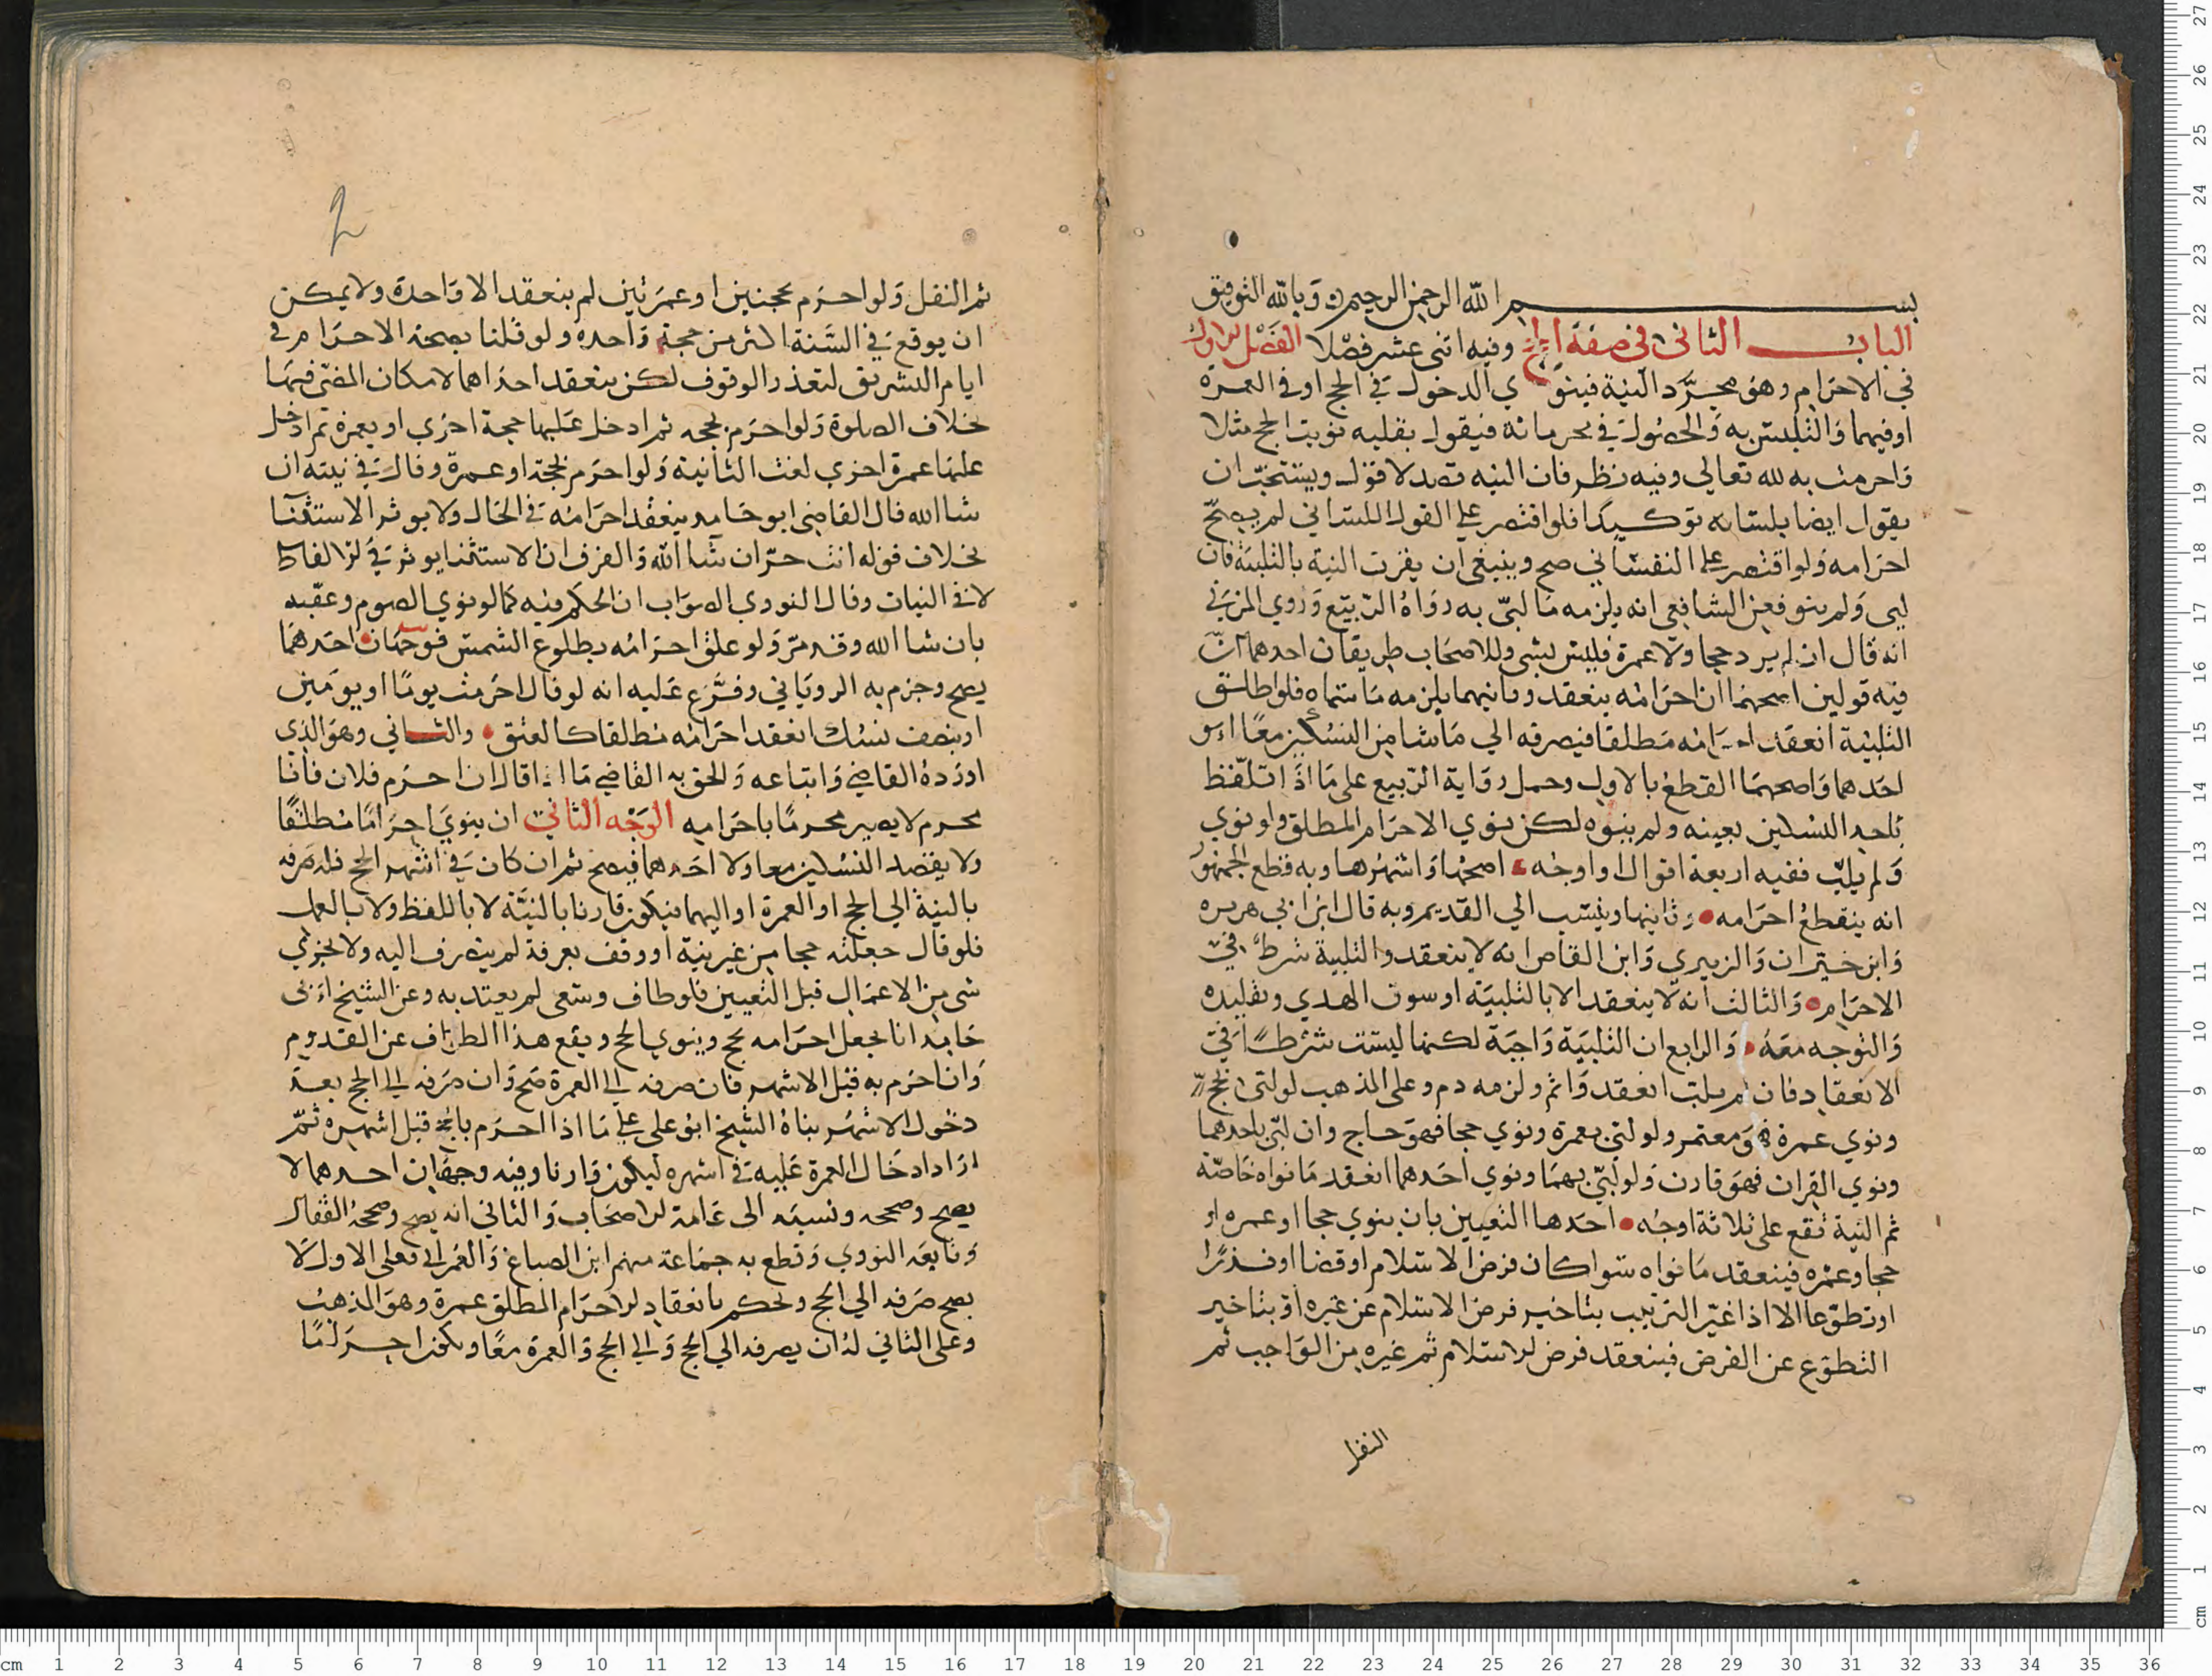 بسم الله الرحمن الرحيم وبالله التوفيق
الباب الثانى فى صفة الحج وفيه اثنى عشر فصلا الفصل الاول
في الاحرام وهو مجرد النية فينوي الدخول في الحج او في العمرة
او فيهما والتلبس به والحصول في محرماته فيقول بقلبه نويت الحج مثلا
واحرمت به لله تعالى وفيه نظر فان النيه قصد لا قول ويستحب ان
يقول ايضا بلسانه توكيدا فلو اقتصر على القول اللساني لم يصح
احرامه ولو اقتصر على النفساني صح وينبغي ان يقرن النية بالتلبية فان
لبى ولم ينو فعن الشافعي انه يلزمه ما لبى به رواه الربيع وروي المزني
انه قال ان لم يرد حجا ولا عمرة فليس بشي وللاصحاب طريقان احدهما ان
فيه قولين اصحهما ان احرامه ينعقد وثانيهما يلزمه ما سماه فلو اطلق
التلبية انعقد احرامه مطلقا فيصرفه الي ما شا من النسكين معا او
احدهما واصحهما القطع بالاول وحمل رواية الربيع على ما اذا تلفظ
باحد النسكين بعينه ولم ينوه لكن نوي الاحرام المطلق ولو نوي
ولم يلب ففيه اربعة اقوال او اوجه اصحها واشهرها وبه قطع الجمهور
انه ينقطع احرامه وثانيها وينسب الي القديم وبه قال ابن ابي هريره
وابن خيران والزبيري وابن القاص انه لا ينعقد والتلبية شرط في
الاحرام والثالث انه لا ينعقد الا بالتلبية او سوق الهدي وتقليده
والتوجه معه والرابع ان التلبية واجبة لكنها ليست شرطا في
الانعقاد فان لم يلب انعقد واثم ولزمه دم وعلى المذهب لو لبى بحج
ونوي عمرة فهو معتمر ولو لبى بعمرة ونوي حجا فهو حاج وان لبى باحدهما
ونوي القران فهو قارن ولو لبى بهما ونوي احدهما انعقد ما نواه خاصة
ثم النية تقع على ثلاثة اوجه احدها التعيين بان ينوي حجا او عمره او
حجا وعمره فينعقد ما نواه سوا كان فرض الاسلام او قضا او نذرا
او تطوعا الا اذا غير الترتيب بتاخير فرض الاسلام عن غيره او بتاخير
التطوع عن الفرض فينعقد فرض الاسلام ثم غيره من الواجب ثم
النفل
2
ثم النفل ولو احرم بحجتين او عمرتين لم ينعقد الا واحدة ولا يمكن
ان يوقع في السنة اكثر من حجة واحده ولو قلنا بصحة الاحرام في
ايام التشريق لتعذر الوقوف لكن ينعقد احداهما لامكان المضي فيها
خلاف الصلوة ولو احرم بحجه ثم ادخل عليها حجة اخري او بعمرة ثم ادخل
عليها عمرة اخري لغت الثانية ولو احرم بحجة او عمرة وقال في نيته ان
شا الله قال القاضي ابو حامد ينعقد احرامه في الحال ولا يوثر الاستثنا
بخلاف قوله انت حر ان شا الله والفرق ان الاستثنا يوثر في الالفاظ
لا في النيات وقال النووي الصواب ان الحكم فيه كما لو نوي الصوم وعقبه
بان شا الله وقد مر ولو علق احرامه بطلوع الشمس فوجهان احدهما
يصح وجزم به الروياني وفرع عليه انه لو قال احرمت يوما او يومين
او بنصف نسك انعقد احرامه مطلقا كالعتق والثاني وهو الذي
اورده القاضي واتباعه والحق به القاضي ما اذا قال ان احرم فلان فانا
محرم لا يصير محرما باحرامه الوجه الثاني ان ينوي احراما مطلقا
ولا يقصد النسكين معا ولا احدهما فيصح ثم ان كان في اشهر الحج فله صرفه
بالنية الي الحج او العمرة او اليهما فيكون قارنا بالنية لا باللفظ ولا بالعمل
فلو قال جعلته حجا من غير نية او وقف بعرفة لم ينصرف اليه ولا يجزي
شي من الاعمال قبل التعيين فلو طاف وسعى لم يعتد به وعن الشيخ ابى
حامد انا نجعل احرامه بحج وينوي الحج ويقع هذا الطواف عن القدوم
وان احرم به قبل الاشهر فان صرفه الى العمرة صح وان صرفه الى الحج بعد
دخول الاشهر بناه الشيخ ابو على على ما اذا احرم بالحج قبل اشهره ثم
اراد ادخال العمرة عليه في اشهره ليكون قارنا وفيه وجهان احدهما لا
يصح وصححه ونسبه الى عامة الاصحاب والثاني انه يصح وصححه القفال
وتابعه النووي وقطع به جماعة منهم ابن الصباغ والغزالي فعلى الاول لا
يصح صرفه الي الحج ونحكم بانعقاد الاحرام المطلق عمرة وهو المذهب
وعلى الثاني له ان يصرفه الي الحج والى الحج والعمرة معا ويكون احراما